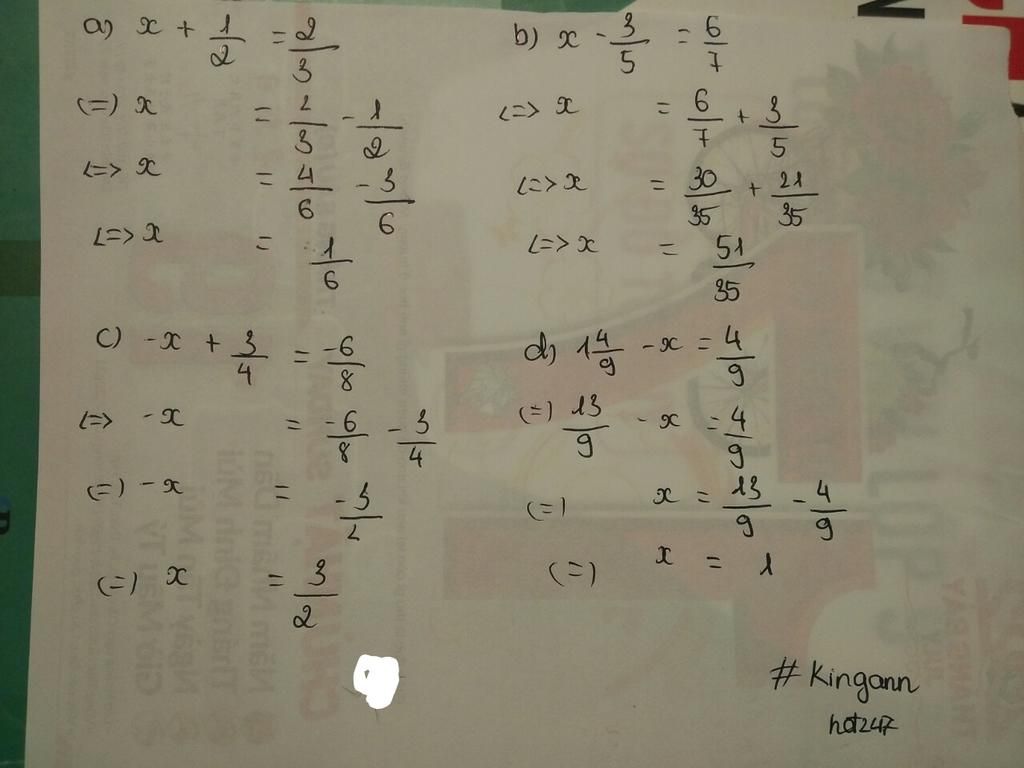 a) x + 1/2 = 2/3
(=) x = 2/3 - 1/2
<=> x = 4/6 - 3/6
<=> x = 1/6
b) x - 3/5 = 6/7
<=> x = 6/7 + 3/5
<=> x = 30/35 + 21/35
<=> x = 51/35
c) -x + 3/4 = -6/8
<=> -x = -6/8 - 3/4
(=) -x = -3/2
(=) x = 3/2
d) 1 4/9 - x = 4/9
(=) 13/9 - x = 4/9
(=) x = 13/9 - 4/9
(=) x = 1
# Kingann
hot247